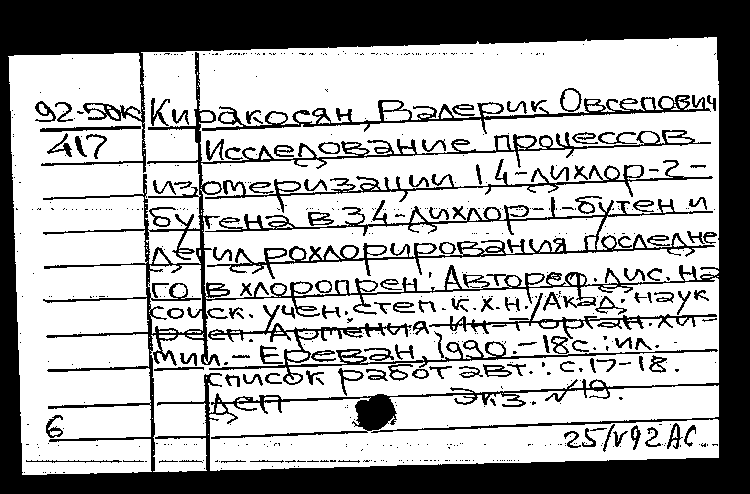 92-50к Киракосян, Валерик Овсепович
417 Исследование процессов
изомеризации 1,4-дихлор-2-
бутена в 3,4-дихлор-1-бутен и
дегидрохлорирования последне
го в хлоропрен: Автореф. дис. на
соиск. учен. степ. к.х.н. /Акад. наук
респ. Армения Ин-т орган. хи-
мии. - Ереван, 1990. - 18с.: ил.
список работ авт.: с. 17-18.
деп Экз. №19.
6
25/V92 АС